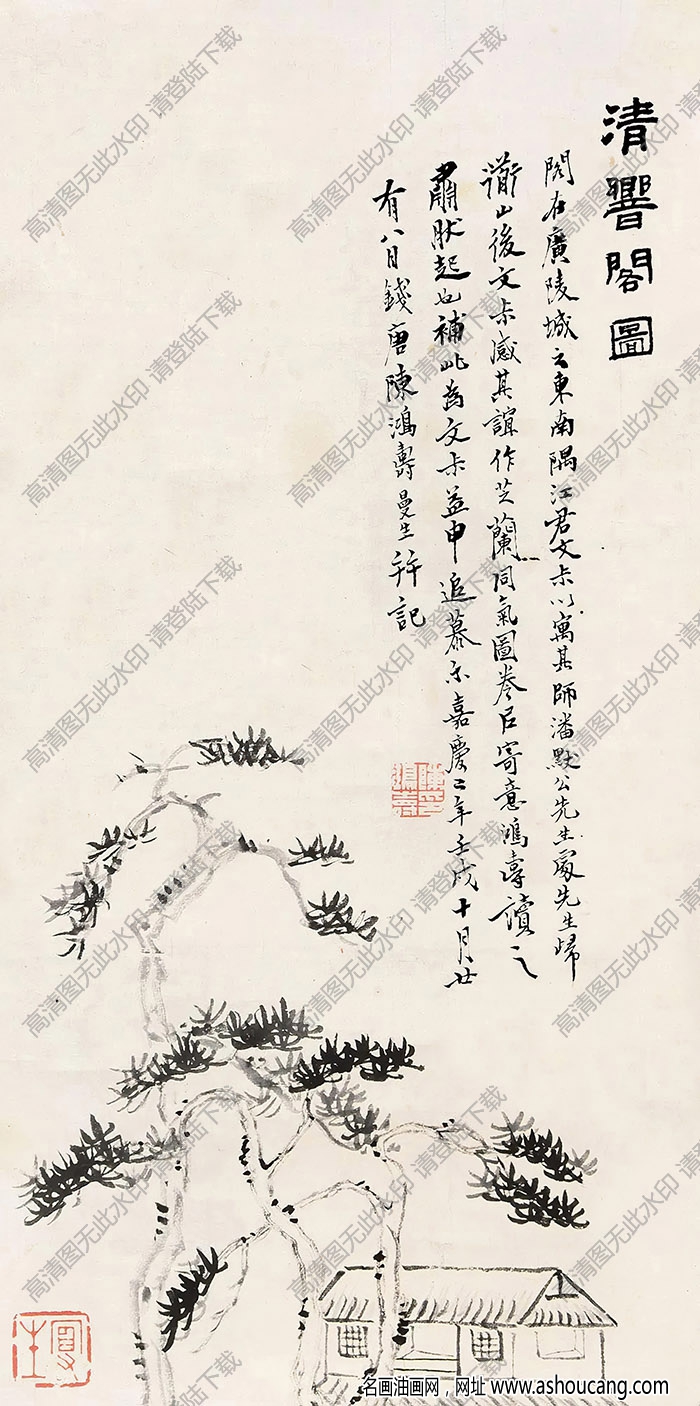 清響閣圖
閣在廣陵城之東南隅江君文尗以寓其師潘默公先生處先生歸
衡山後文尗感其誼作芝蘭同氣圖卷以寄意鴻壽讀之
肅肰起也補此為文尗益申追慕尒嘉慶二年壬戌十月廿
有八日錢唐陳鴻壽曼生并記
陳鴻壽
曼生
高清图无此水印 请登陆下载
名画油画网，网址 www.ashoucang.com